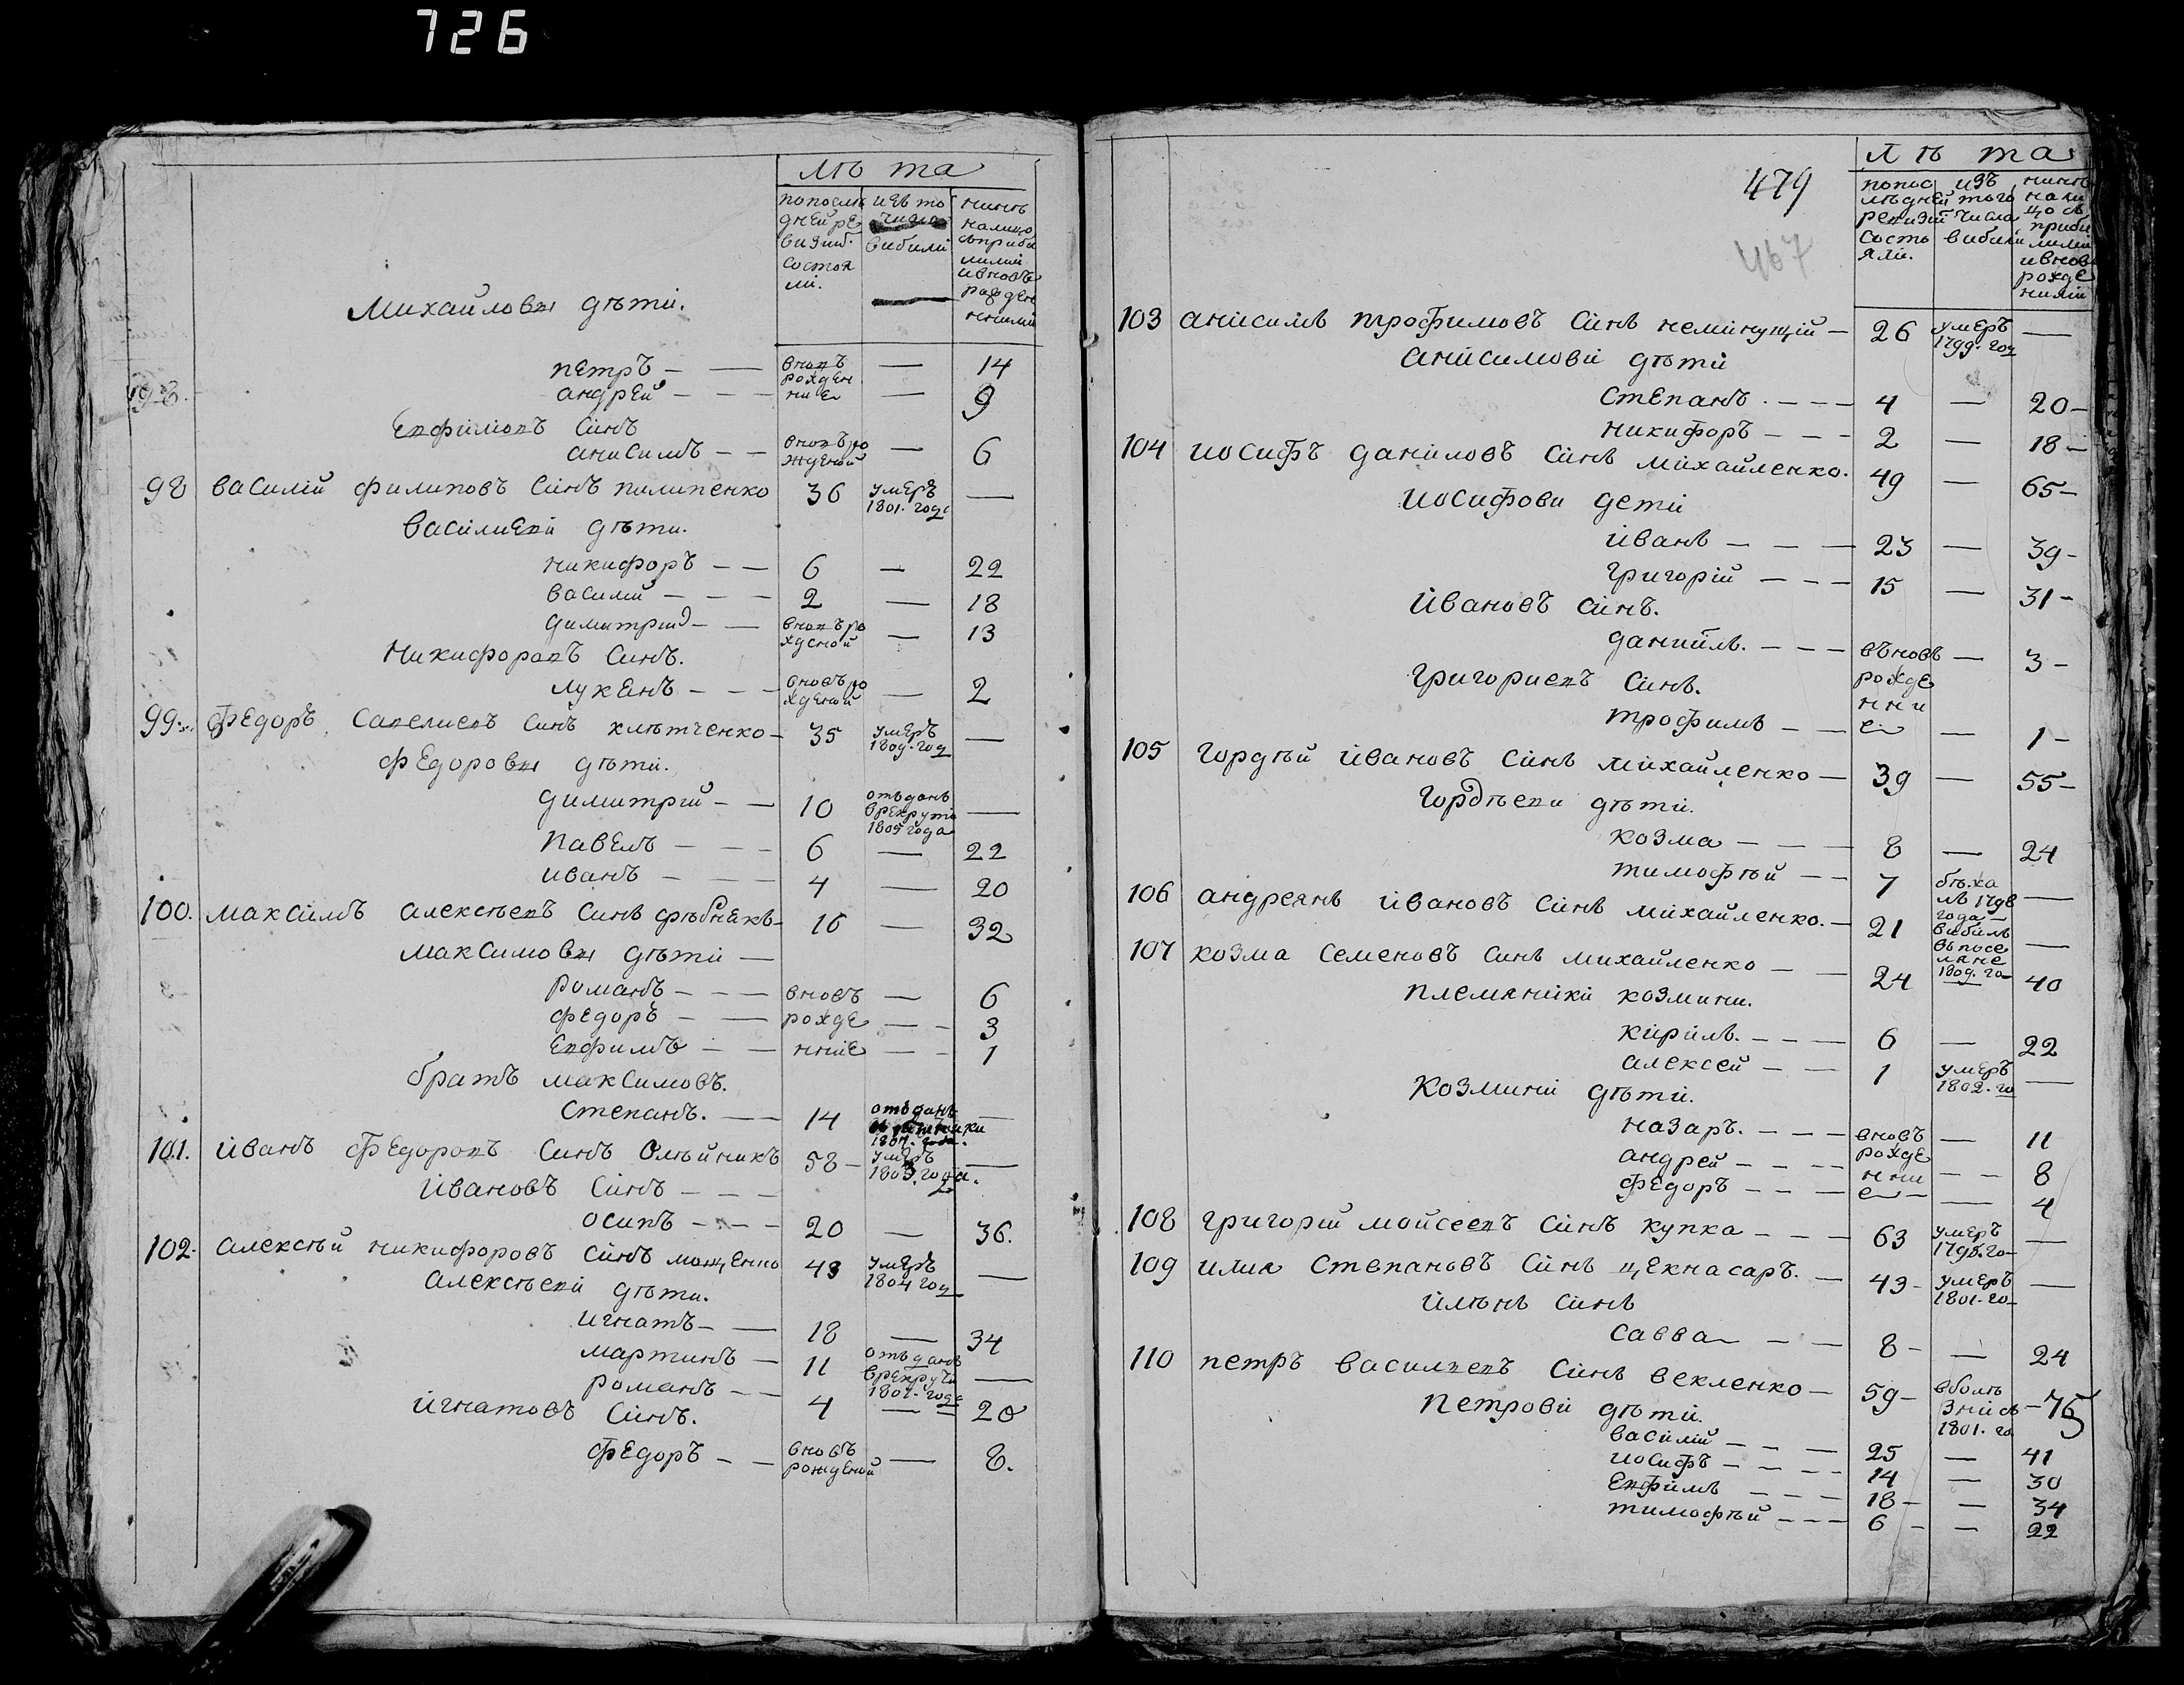 726
лѣ та
попослѣ изъ то нинѣ
дней ре числа налицо
визіи вибили съприбы
состоя лими
ли. ивновъ
рожден
ними
Михайловы дѣти.
петръ — вновъ — 14
рожден
андрей — ние — 9
Евфимовъ синъ
анисимъ — вновъ ро — 6
жденой
98 василій филиповъ синъ пилипенко 36 умеръ —
1801. года
василиеви дѣти.
никифоръ — 6 — 22
василий — 2 — 18
димитрий — вновъ ро — 13
жденой
никифоровъ синъ.
лукенъ — вновъ ро — 2
жденой
99. федоръ савелиевъ синъ клѣтченко — 35 умеръ —
1809. год
федоровы дѣти.
димитрій — 10 отъданъ —
врекрути
1805 года
павелъ — 6 — 22
иванъ — 4 — 20
100. максимъ алексѣевъ синъ — 16 — 32
максимовы дѣти —
романъ — вновъ — 6
федоръ — рожде — 3
Евфимъ — нніе — 1
братъ максимовъ.
степанъ. — 14 отъданъ —
101. иванъ федоровъ синъ Олѣйникъ 58 — умеръ —
1803. года.
ивановъ синъ —
осипъ — 20 — 36.
102. алексѣй никифоровъ синъ мащенко 43 умеръ —
1804 год
алексѣеви дѣти.
игнатъ — 18 — 34
мартинъ — 11 отъданъ —
врекрути
1801. года
романъ — 4 — 20
игнатовъ синъ.
федоръ — вновъ — 8.
рожденой
479
467
лѣ та
попос изъ нинѣ
лѣдней того нали
ревизіи числа цо съ
состо вибили прибы
яли. лими
ивновъ
рожде
ними
103 анисимъ трофимовъ синъ неминущій — 26 умеръ —
1799. год
анисимови дѣти
степанъ. — 4 — 20 —
никифоръ — 2 — 18 —
104 иосифъ даниловъ синъ михайленко. 49 — 65 —
иосифови дети
иванъ — 23 — 39 —
григорій — 15 — 31 —
ивановъ синъ.
даниилъ. — въновъ — 3 —
рожде
григориевъ синъ. нни
трофимъ — е — 1 —
105 гордѣй ивановъ синъ михайленко — 39 — 55 —
гордѣеви дѣти.
козма — 8 — 24
тимофѣй — 7 бѣжа —
лъ 1798
года
106 андреянъ ивановъ синъ михайленко. — 21 вибилъ —
въ посе
ляне
1809. го
107 козма семеновъ синъ михайленко — 24 — 40
племяники козмини.
кирилъ. — 6 — 22
алексей — 1 умеръ —
1802. го
козмини дѣти.
назаръ. — вновъ — 11
андрей — рожде — 8
федоръ — нни е — 4
108 григорій мойсеевъ синъ купка — 63 умеръ —
1798. го
109 илия степановъ синъ цекнасаръ. — 43 — умеръ —
1801. го
илѣнъ синъ
савва — 8 — 24
110 петръ василиевъ синъ векленко — 59 — вболѣ — 75
зни съ
1801. го
петрови дѣти.
василій — 25 — 41
иосифъ — 14 — 30
Евфимъ — 18 — 34
тимофѣй — 6 — 22